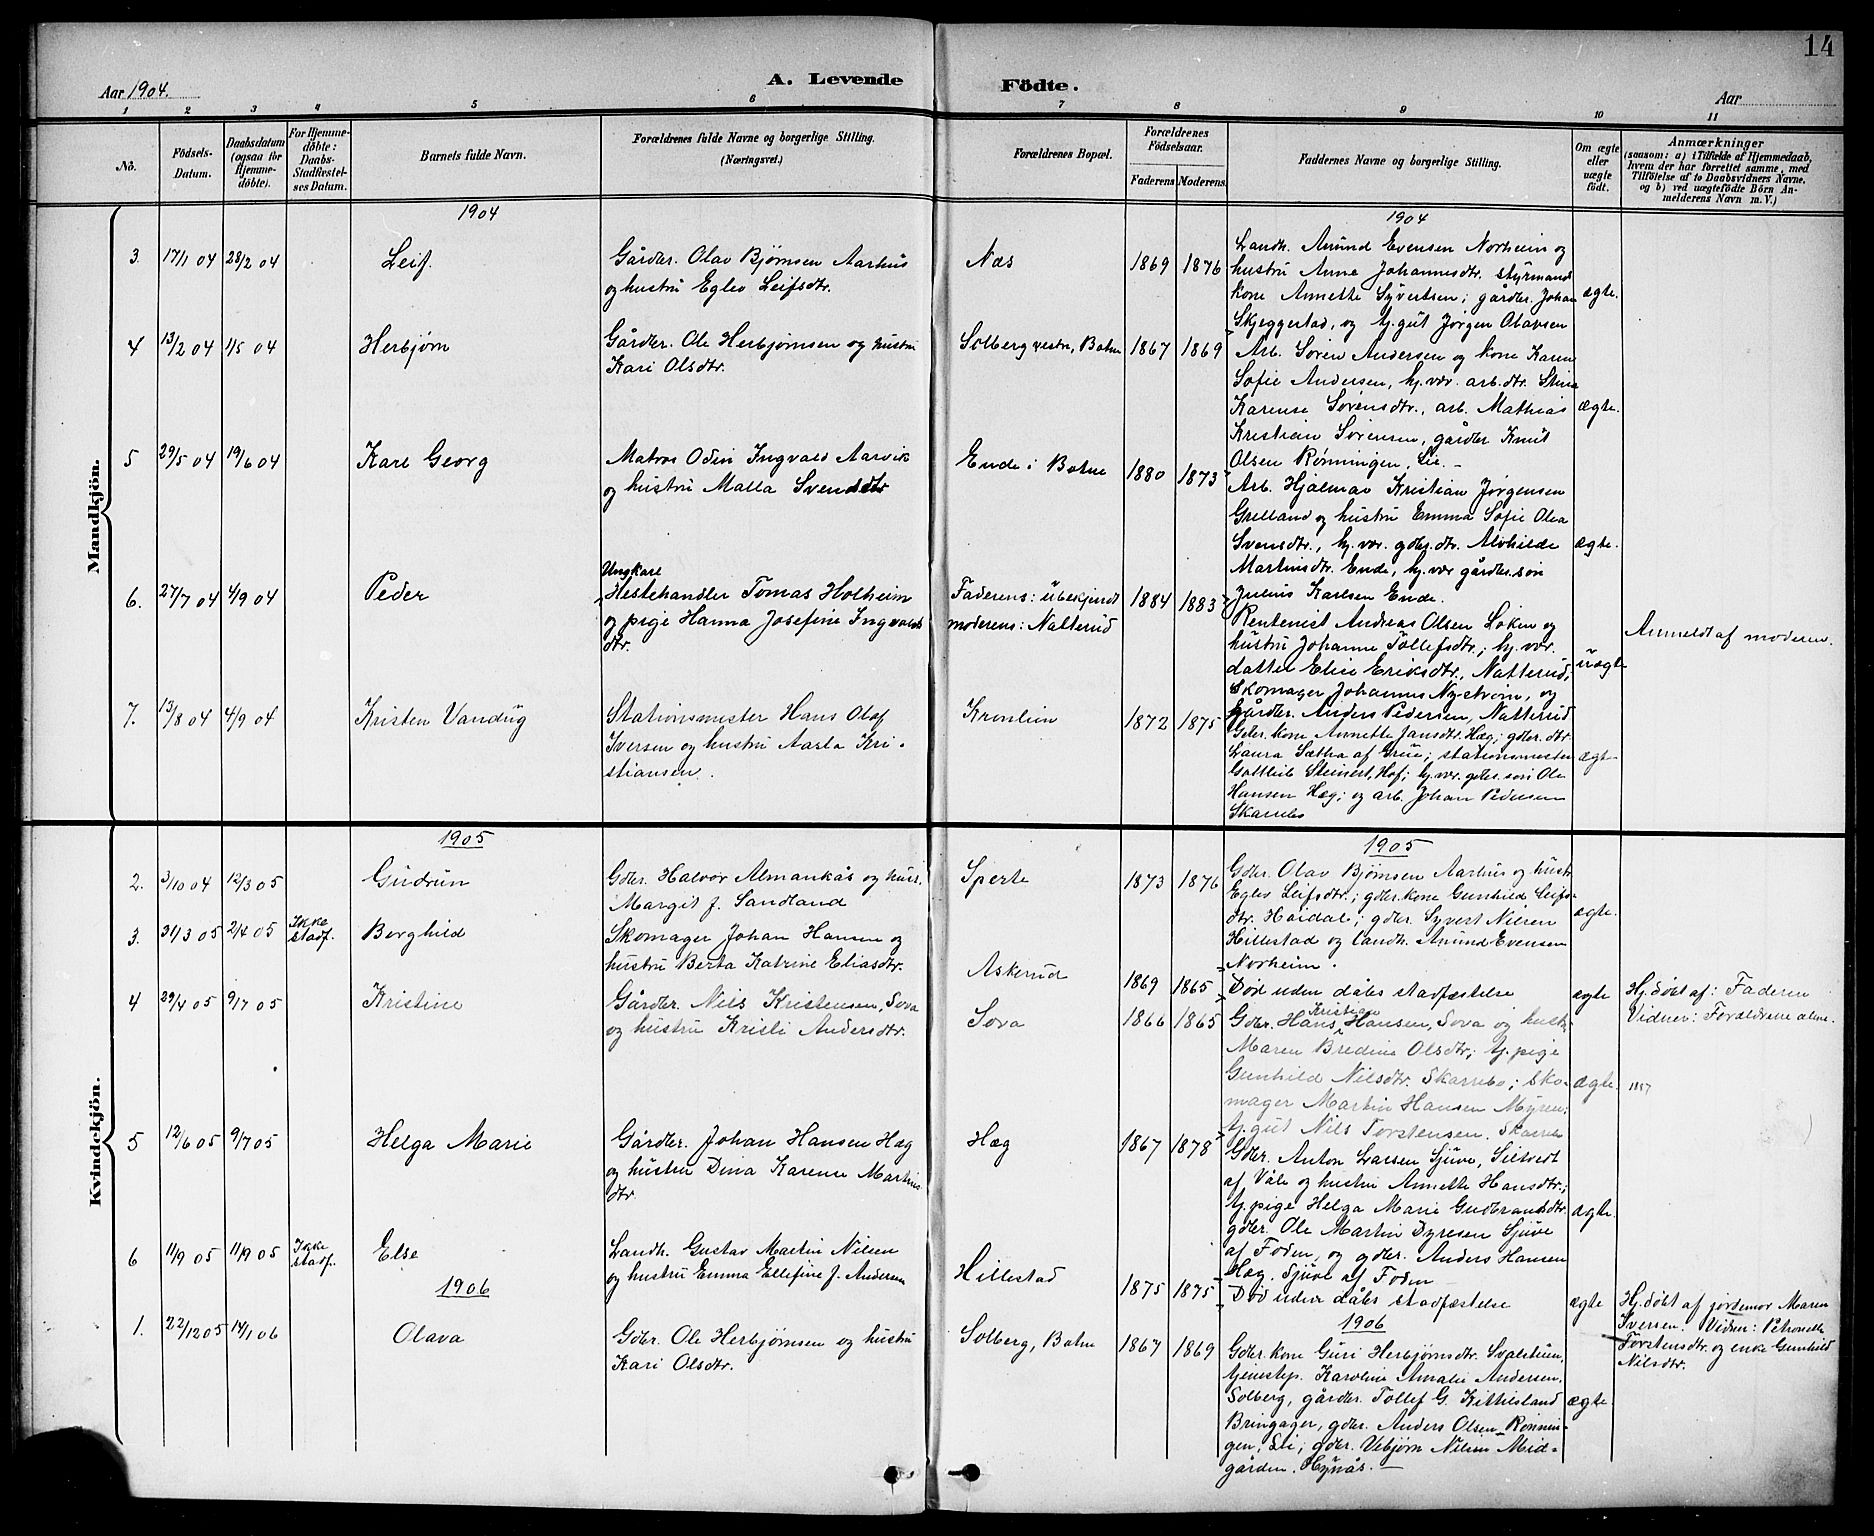 14
A. Levende Födte.
Aar 1904.
Aar
1 2 3 4 5 6 7 8 9 10 11
No.
Födsels-Datum.
Daabsdatum (ogsaa for Hjemmedöbte).
For Hjemmedöbte: Daabs-Stadfæstelses Datum.
Barnets fulde Navn.
Forældrenes fulde Navne og borgerlige Stilling.
(Næringsvei.)
Forældrenes Bopæl.
Forældrenes Födselsaar.
Faderens. Moderens.
Faddernes Navne og borgerlige Stilling.
Om ægte eller uægte födt.
Anmærkninger
(saasom: a) i Tilfælde af Hjemmedaab,
hvem der har forrettet samme, med
Tilföielse af to Daabsvidners Navne,
og b) ved uægtefödte Börn Anmelderens Navn m. V.)
Mandkjön.
1904
1904
3. 17/1 04 28/2 04 Leif. Gårdbr. Olav Bjørnsen Aarhus
og hustru Eglev Leifsdtr.
Næs 1869 1876
Landh. Amund Evensen Norheim og
hustru Anne Johannesdtr. styrmand
kone Annette Syvertsen; gårdbr. Johan
Skjeggestad, og tj. gut Jörgen Olavsen
ægte.
4 13/2 04 1/5 04 Herbjørn Gårdbr. Ole Herbjørnsen og hustru
Kari Olsdtr.
Solberg vestre, Botne 1867 1869
Arb. Sören Andersen og kone Karen
Sofie Andersen, hj. vær. arb. dtr. Stina
Karense Sörensdtr., arb. Mathias
Kristian Sörensen, gårdbr. Knut
Olsen Rønningen, Lie.
ægte.
5 29/5 04 19/6 04 Karl Georg Matros Odin Ingvald Aarvik
og hustru Malla Svendsdtr
Ende i Botne 1880 1873
Arb. Hjalmar Kristian Jørgensen
Grelland og hustru Emma Sofie Olea
Svensdtr., hj. vær. gdbr. dtr. Alvhilde
Martinsdtr. Ende, hj. vær gårdbr. sön
Julius Karlsen Ende.
ægte.
6. 27/7 04 4/9 04 Peder Ungkarl
Hestehandler Tomas Holheim
og pige Hanna Josefine Ingvalds
dtr.
Faderens: ubekjendt
moderens: Natterud
1884 1883
Rentenist Andreas Olsen Löken og
hustru Johanne Tollefsdtr.; hj. vær.
datter Elise Eriksdtr., Natterud;
Skomager Johannes Nyström, og
gårdbr. Anders Pedersen, Natterud
uægte
Anmeldt af moderen.
7. 13/8 04 4/9 04 Kristen Vandug Stationsmester Hans Olaf
Iversen og hustru Aasta Kri-
stiansen.
Kronlien 1872 1875
Gdbr. kone Annette Jansdtr. Hæg; gdbr. dtr.
Laura Sætha af Grue; stationsmester
Gottlieb Steinert, Hof; hj. vær. gdbr. sön Ole
Hansen Hæg; og arb. Johan Pedersen
Skarrebo
ægte
Kvindekjön.
1905
1905
2. 3/10 04 12/3 05 Gudrun Gdbr. Halvor Almankås og hus.
Margit f. Sandland
Sperte 1873 1876
Gdbr. Olav Bjørnsen Aarhus og hustr.
Eglev Leifsdtr.; gdbr. kone Gunhild Leifs-
dtr. Høidal; gdbr. Syvert Nilsen
Hillestad og landh. Amund Evensen
Norheim.
ægte.
3. 31/3 05 2/4 05 Ikke
stadf. Borghild Skomager Johan Hansen og
hustru Berta Katrine Eliasdtr.
Askerud 1869 1865
Död uden dåbs stadfæstelse
ægte
Hj. döbt af: Faderen
Vidner: Forældrene alene.
4 29/4 05 9/7 05 Kristine Gårdbr. Nils Kristensen, Sova
og hustru Kristi Andersdtr.
Sova 1866 1865
Gdbr. Hans Kristian Hansen, Sova og hustr.
Maren Bredine Olsdtr; tj. pige
Gunhild Nilsdtr. Skarrebo; sko-
mager Martin Hansen Myren;
tj. gut Nils Torstensen. Skarrebo
ægte.
5 12/6 05 9/7 05 Helga Marie Gårdbr. Johan Hansen Hæg
og hustru Dina Karense Martins
dtr
Hæg 1867 1878
Gdbr. Anton Larsen Sjuve, Siltvedt
af Våle og hustru Annette Hansdtr.;
tj. pige Helga Marie Gudbrandsdtr.
gdbr. Ole Martin Dyresen Sjuve
af Foden, og gdbr. Anders Hansen
Hæg. Sjuve af Foden
ægte.
6 11/9 05 11/9 05 Ikke
stadf. Else Landh. Gustav Martin Nilsen
og hustru Emma Ellefine f. Andersen
Hillestad 1875 1875
Död uden dåbs stadfæstelse
ægte
Hj. döbt af jordemor Maren
Iversen. Vidner: Petronelle
Torstensdtr. og enke Gunhild
Nilsdtr.
1906
1906
1. 22/12 05 14/1 06 Olava Gdbr. Ole Herbjørnsen og hustru
Kari Olsdtr.
Solberg, Botne 1867 1869
Gdbr. kone Guri Herbjørnsdtr. Svalstuen,
tjenestep. Karoline Amalie Andersen,
Solberg, gårdbr. Tollef G. Kittilsland
Bringager, gdbr. Anders Olsen Rønnin-
gen, Lie; gdbr. Vebjørn Nilsen Mid-
gården. Hynås.
ægte.